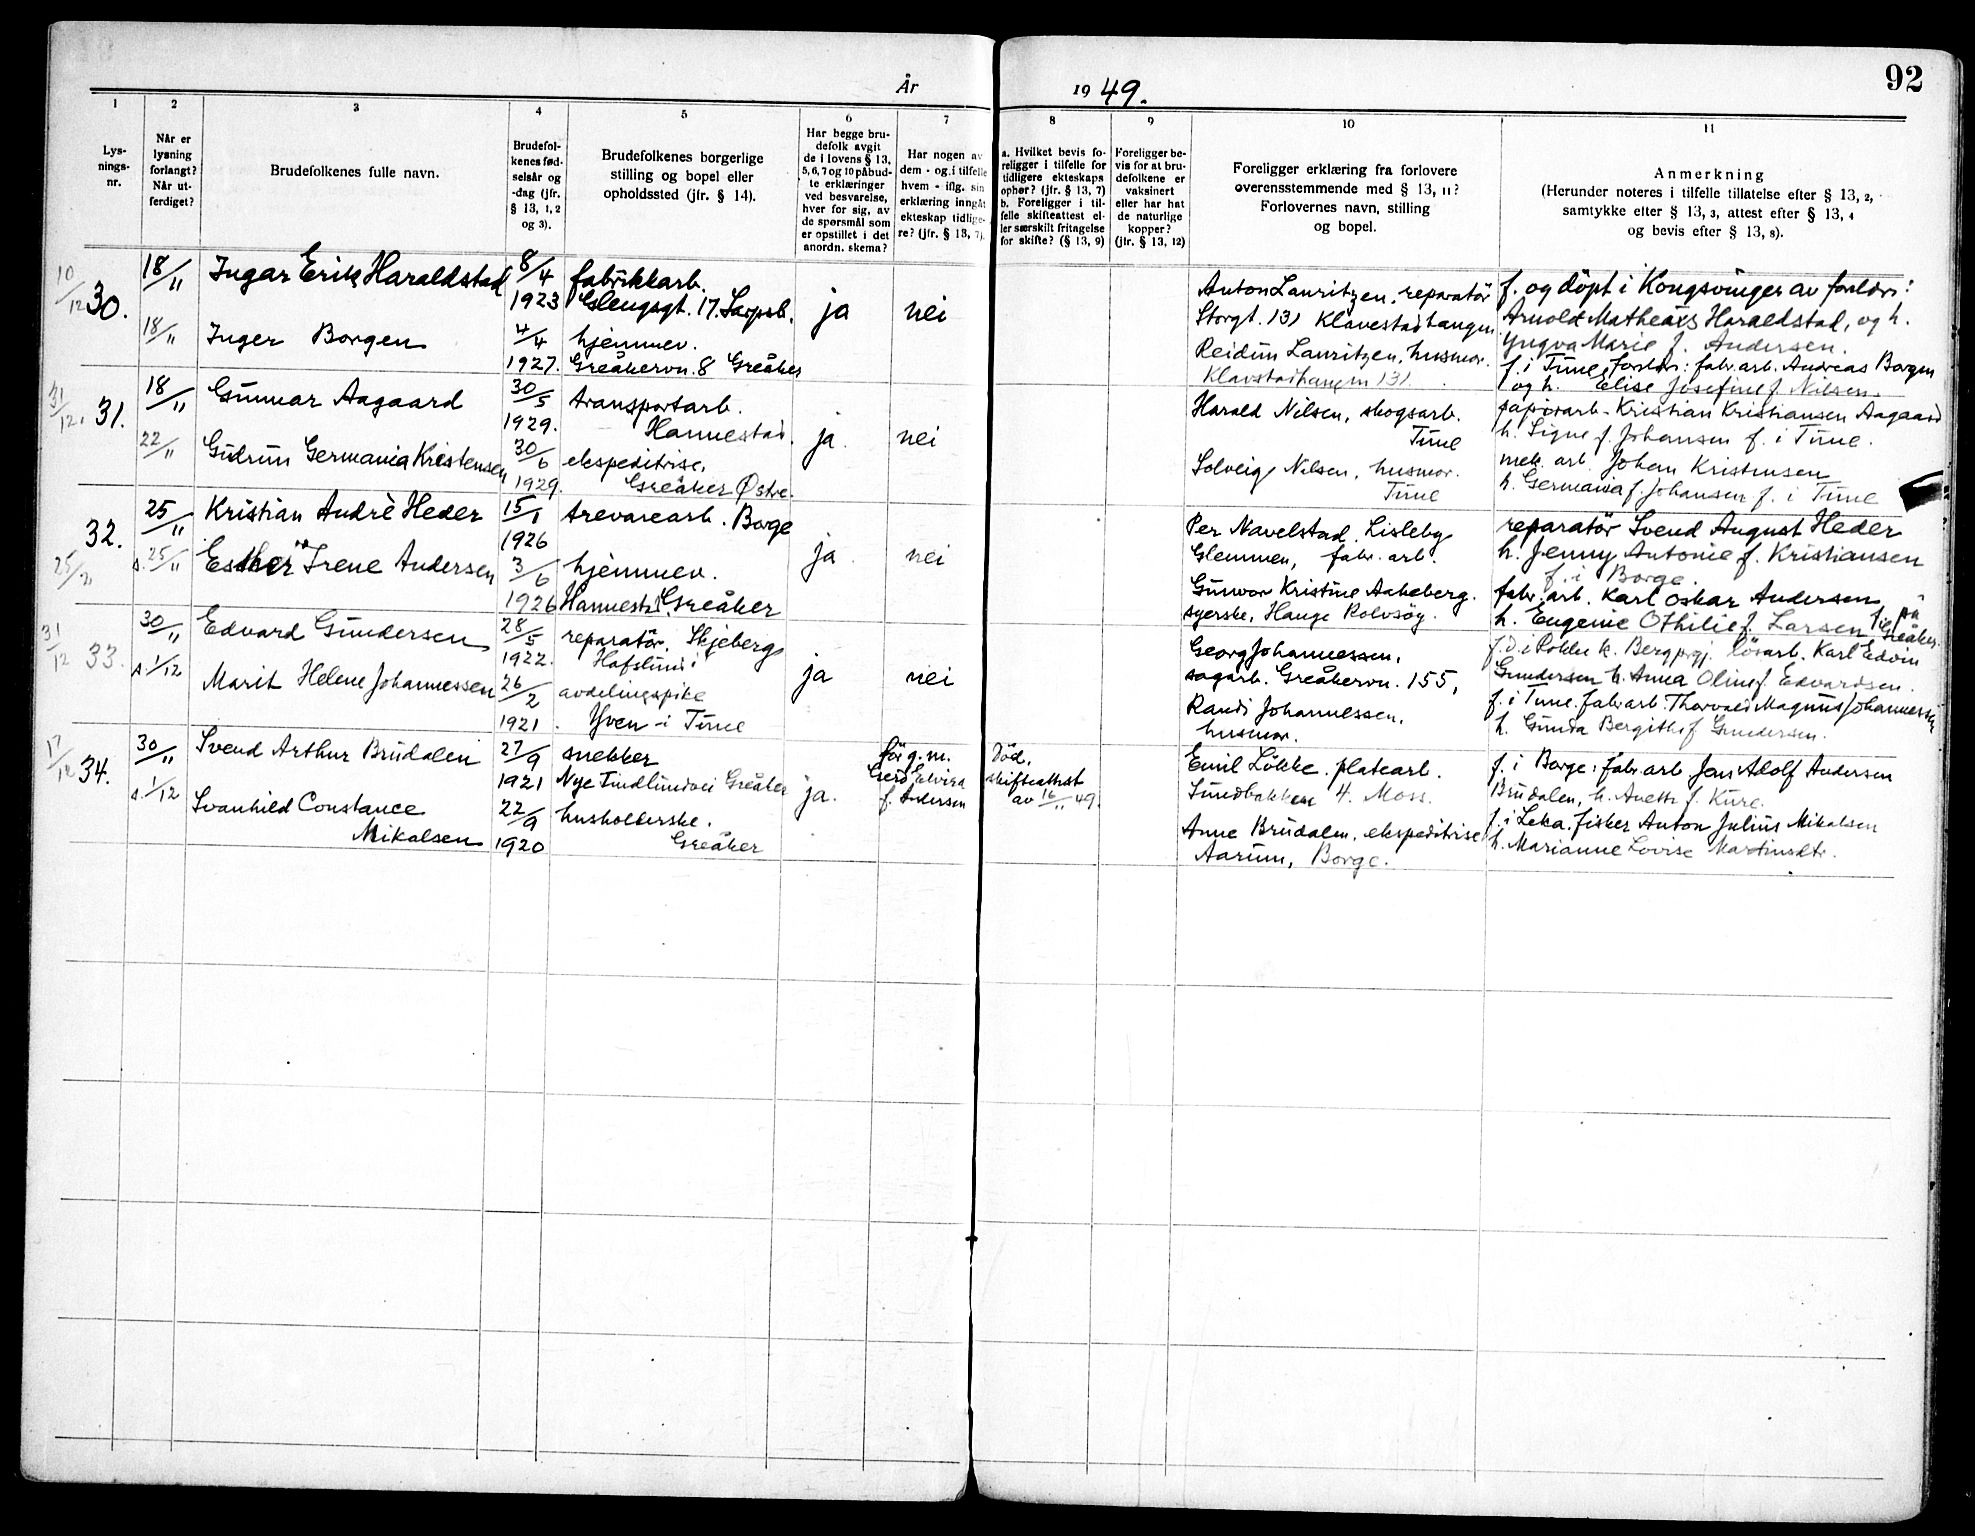 92
År 1949.
1 2 3 4 5 6 7 8 9 10 11
Lys-
nings-
nr.
Når er
lysning
forlangt?
Når ut-
ferdiget?
Brudefolkenes fulle navn.
Brudefol-
kenes fød-
selsår og
-dag (jfr.
§ 13, 1, 2
og 3).
Brudefolkenes borgerlige
stilling og bopel eller
opholdssted (jfr. § 14).
Har begge bru-
defolk avgit
de i lovens § 13,
5, 6, 7 og 10 påbud-
te erklæringer
ved besvarelse,
hver for sig, av
de spørsmål som
er opstillet i det
anordn. skema?
Har nogen av
dem - og i tilfelle
hvem - iflg. sin
erklæring inngåt
ekteskap tidlige-
re? (jfr. § 13, 7).
a. Hvilket bevis fo-
religger i tilfelle for
tidligere ekteskaps
ophør? (jfr. § 13, 7)
b. Foreligger i til-
felle skifteattest el-
ler særskilt fritagelse
for skifte? (§ 13, 9)
Foreligger be-
vis for at bru-
defolkene er
vaksinert
eller har hat
de naturlige
kopper?
(jfr. § 13, 12)
Foreligger erklæring fra forlovere
overensstemmende med § 13, 11?
Forlovernes navn, stilling
og bopel.
Anmerkning
(Herunder noteres i tilfelle tillatelse efter § 13, 2,
samtykke efter § 13, 3, attest efter § 13, 4
og bevis efter § 13, 8).
10/12 30.
18/11
18/11
Ingar Erik Haraldstad
Inger Borgen
8/4
1923
4/4
1927.
fabrikkarb.
Glengsgt. 17. Sarpsb.
hjemmev.
Greåkervn. 8 Greåker
ja
nei
Anton Lauritzen, reparatör
Storgt. 131 Klavestadhaugen
Reidun Lauritzen, husmor.
Klavestadhaugen 131.
f. og döpt i Kongsvinger av foreldr:
Arnold Matheas Haraldstad, og h.
Yngva Marie f. Andersen.
f. i Tune, foreldr: fabr. arb. Andreas Borgen
og h. Elise Josefine f. Nilsen.
31/12. 31.
18/11
22/11
Gunnar Aagaard
Gudrun Germania Kristensen
30/5
1929.
30/6
1929.
transportarb.
Hannestad.
ekspeditrise,
Greåker Østre.
ja.
nei
Harald Nilsen, skogsarb.
Tune
Solveig Nilsen, husmor.
Tune
papirarb. Kristian Kristiansen Aagaard
h. Signe f. Johansen f. i Tune.
mek. arb. Johan Kristensen
h. Germania f. Johansen f. i Tune
32.
25/11
s. 25/11
Kristian Andrè Heder
Esther Irene Andersen
15/1
1926
3/6
1926
trevarearb. Borge
hjemmev.
Hannestad. Greåker
ja
nei
Per Navelstad, Lisleby
Glemmen, fabr. arb.
Gunvor Kristine Aakeberg.
syerske, Hauge Rolvsöy.
reparatör Svend August Heder
h. Jenny Antonie f. Kristiansen
f. i Borge.
fabr. arb. Karl Oskar Andersen
h. Eugenie Othilie f. Larsen f. på Greåker.
31/12 33.
30/11
s. 1/12
Edvard Gundersen
Marit Helene Johannessen
28/5
1922.
26/2
1921
reparatör, Skjeberg
Hafslund i
avdelingspike
Yven i Tune
ja
nei
Georg Johannessen,
sagarb. Greåkervn. 155,
Randi Johannessen,
husmor.
f. d. i Rokke k. Berg prgj. lösarb. Karl Edvin
Gundersen h. Anna Oline f. Edvardsen.
f. i Tune. fabr. arb. Thorvald Magnus Johannessen
h. Gunda Bergithe f. Gundersen.
17/12 34.
30/11
s. 1/12
Svend Arthur Brudalen
Svanhild Constance
Mikalsen
27/9
1921
22/9
1920
snekker
Nye Tindlundvei Greåker
husholderske.
Greåker
ja.
för g. m.
Gerd Elvira
f. Andersen
Död.
skifteattest
av 16/11 49.
Emil Lökke. platearb.
Sundbakken 4. Moss.
Anne Brudalen, ekspeditrise
Aarum, Borge.
f. i Borge: fabr. arb Jens Adolf Andersen
Brudalen, h. Anette f. Kure.
f. i Leka. fisker Anton Julius Mikalsen
h. Marianne Lovise Martinsdtr.